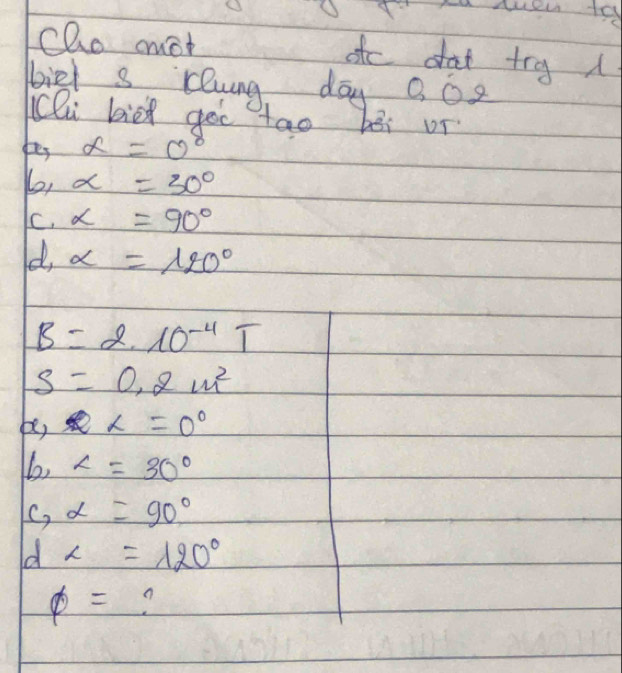 Cho một đc đặt trg 1
biết S khung dây 0,02
Khi biết góc tạo bởi vt
a, α = 0°
b, α = 30°
c, α = 90°
d, α = 120°
B = 2.10⁻⁴ T
S = 0,2 m²
a, α = 0°
b, α = 30°
c, α = 90°
d α = 120°
φ = ?